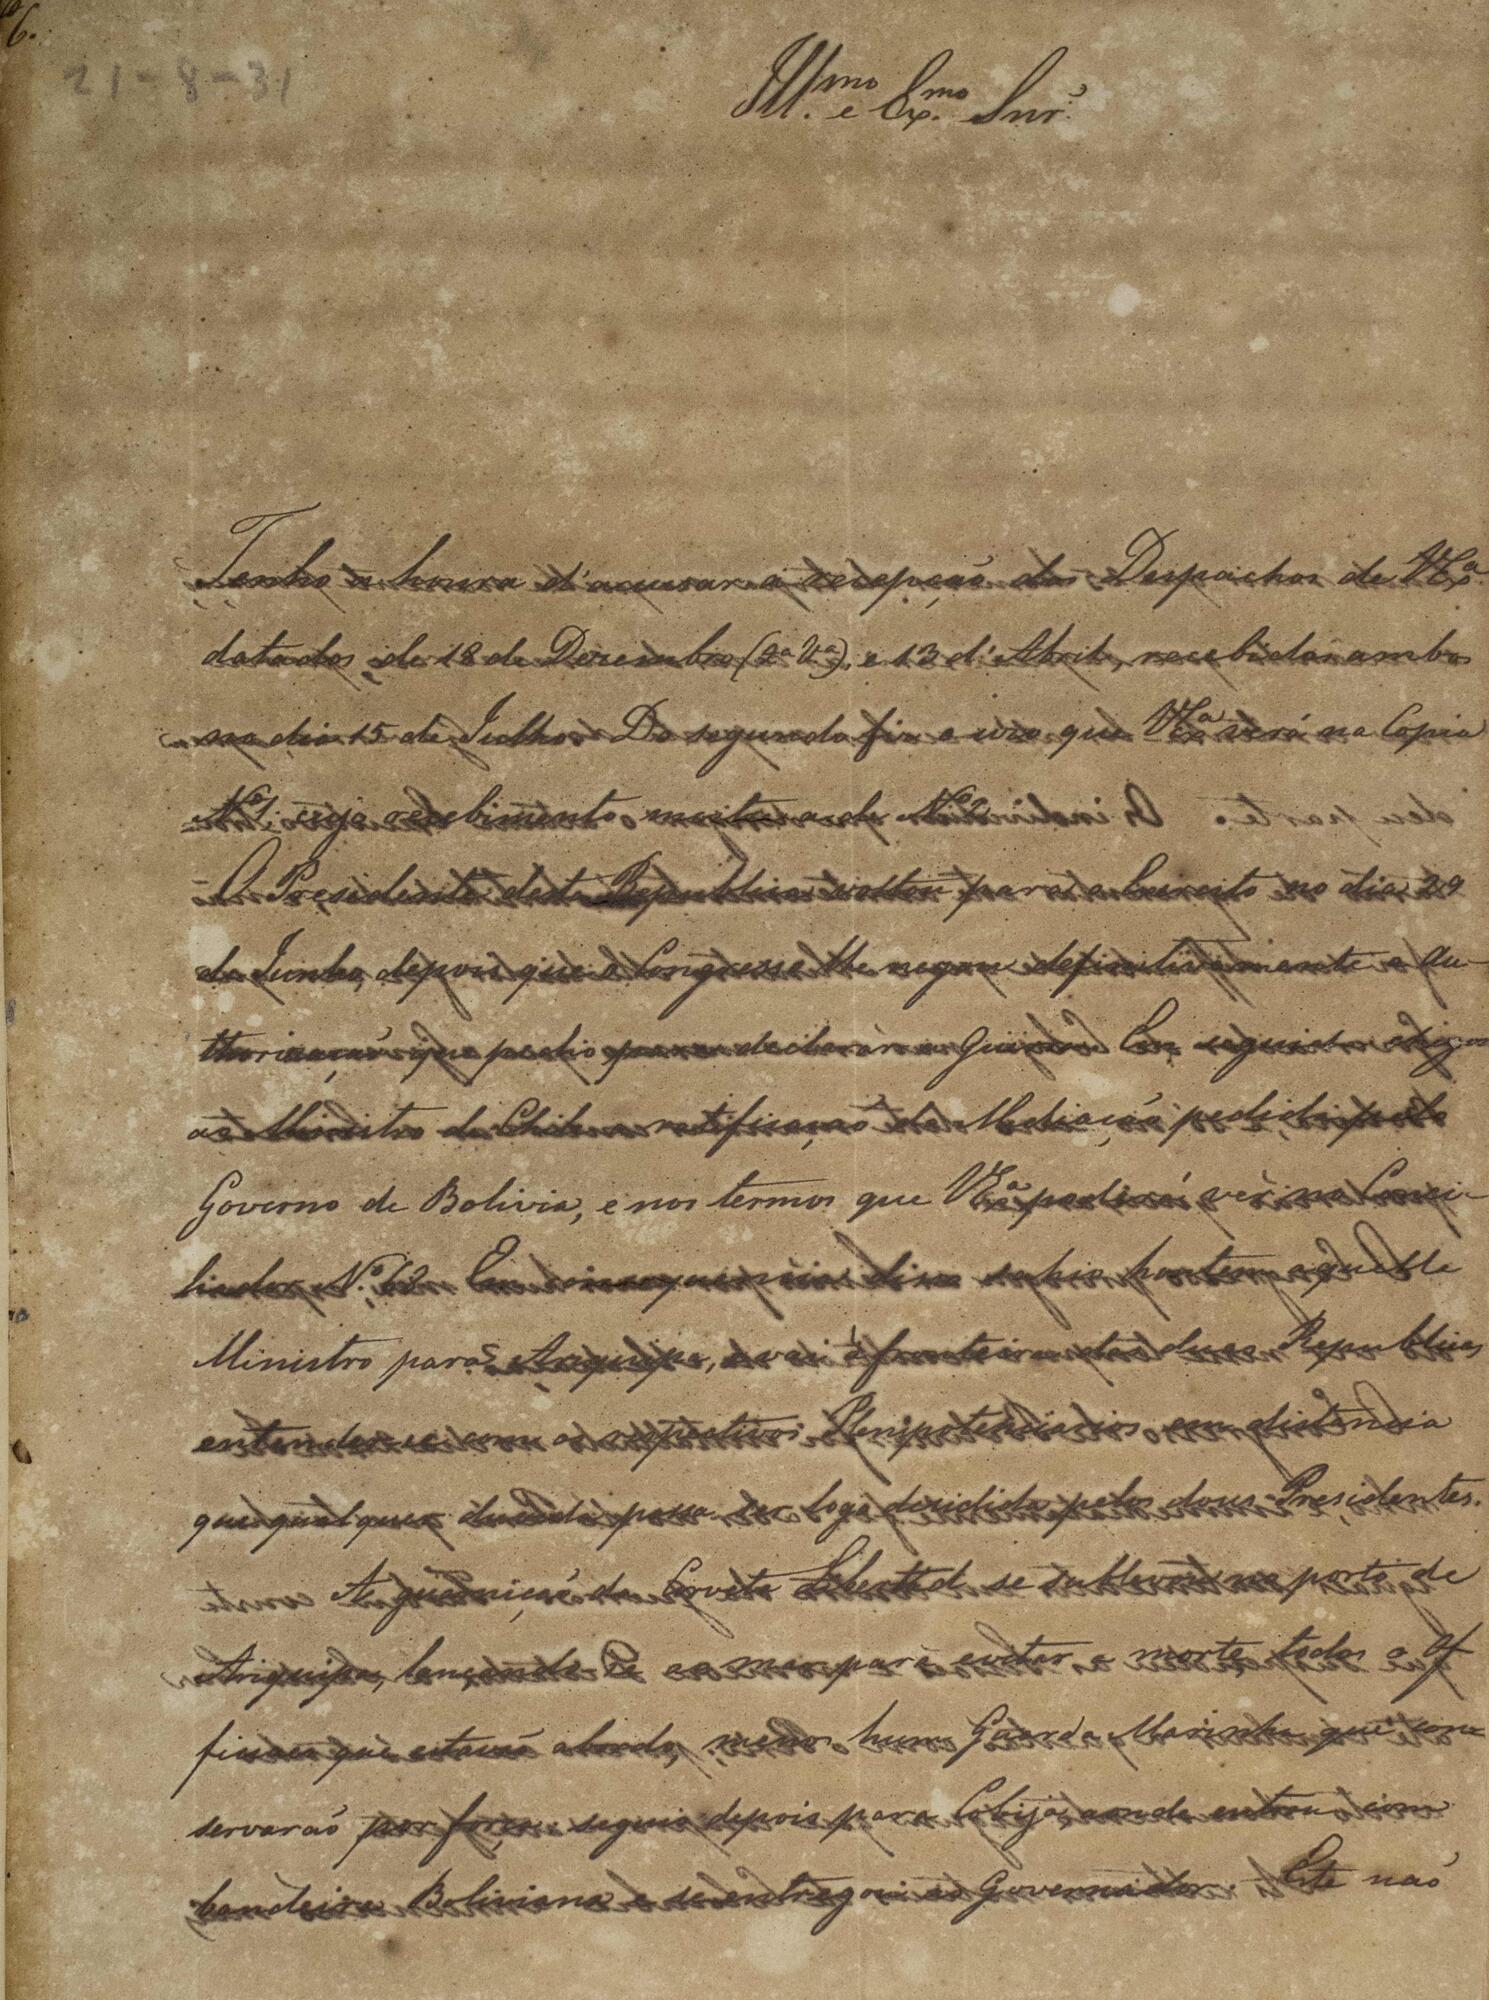 6.
21-8-31
Ill.mo e Ex.mo Snr.
Tenho a honra d'accusar a recepção dos Despachos de VEx.a
datados de 18 de Dezembro (2a Va), e 13 d'Abril, recebidos ambos
no dia 15 de Julho. Do segundo fiz o uzo que VEx.a verá na Copia
N.o 1, cujo recebimento a de N.o 2
O Presidente desta Republica voltou para o Exercito no dia 29
de Junho, depois que o Congresso lhe negou definitivamente a au-
thorização que pedio para declarar a Guerra. Em seguida
ao Ministro do Chile a ratificação da Mediação pedida pelo
Governo de Bolivia, e nos termos que VEx.a poderá vêr no Conci-
liador N.o 62 Em consequencia disso sahio hontem aquelle
Ministro para Arequipa, e vai á fronteira das duas Republicas
entender-se com os respectivos Plenipotenciarios, em distancia
que qualquer duvida possa ser logo decidida pelos dous Presidentes.
A guarnição da Corveta Libertad se sublevou no porto de
Ariquipa, lançando-se ao mar para evitar a morte, todos o Of
ficiaes que estavão abordo, menos hum Guarda Marinha que con-
servarão por força: seguio depois para Cobija, aonde entrou com
bandeira Boliviana e se entregou ao Governador. Este não